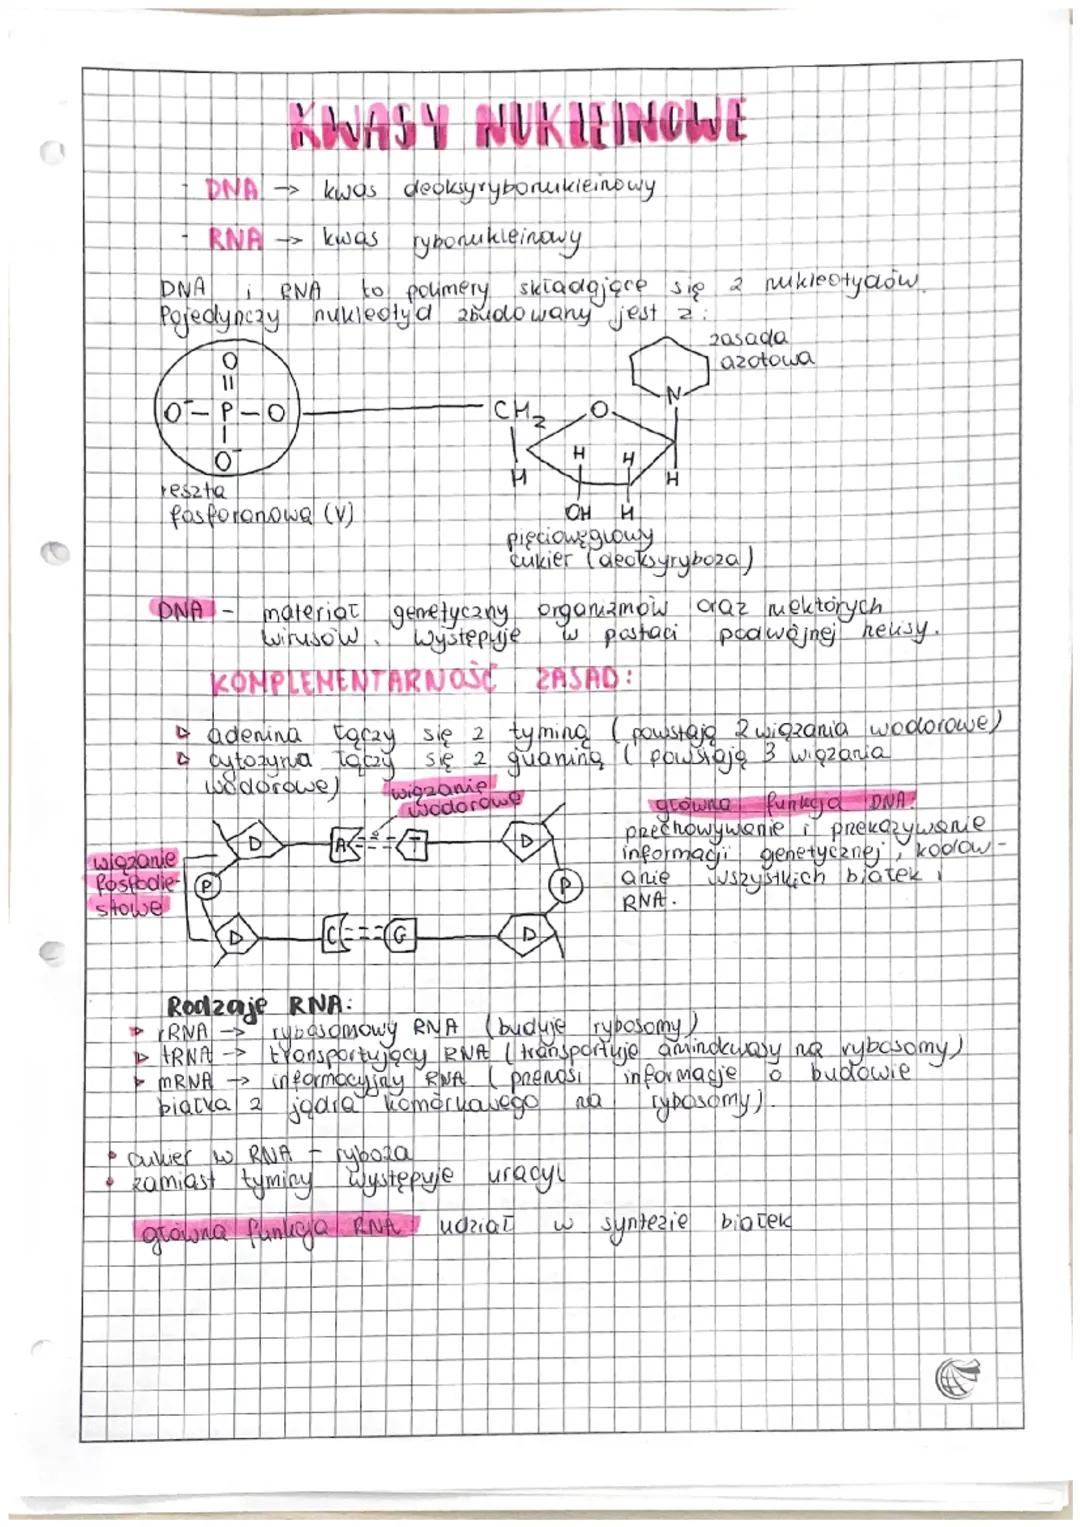 KWASY NUKLEINOWE
- DNA → kwas deoksyrybonukleinowy
- RNA → kwas rybonukleinowy
DNA i RNA to polimery składające się z nukleotydów.
Pojedynczy nukleotyd zbudowany jest z:
zasada
azotowa
O
O⁻ – P – O
O⁻
CH₂
O
N
H
H
H
H
OH H
reszta
fosforanowa (V)
pięciowęglowy
cukier (deoksyryboza)
DNA - materiał genetyczny organizmów oraz niektórych
wirusów. Występuje w postaci podwójnej helisy.
KOMPLEMENTARNOŚĆ ZASAD:
▷ adenina łączy się z tyminą (powstają 2 wiązania wodorowe)
▷ cytozyna łączy się z guaniną (powstają 3 wiązania
wodorowe)
wiązanie
wodorowe
wiązanie
fosfodie-
strowe
D A T D
P P
D C G D
główna funkcja DNA:
przechowywanie i przekazywanie
informacji genetycznej, kodow-
anie wszystkich białek i
RNA.
Rodzaje RNA:
▷ rRNA → rybosomowy RNA (buduje rybosomy)
▷ tRNA → transportujący RNA (transportuje aminokwasy na rybosomy)
▷ mRNA → informacyjny RNA (przenosi informacje o budowie
białka z jądra komórkowego na rybosomy).
• cukier w RNA - ryboza
• zamiast tyminy występuje uracyl
główna funkcja RNA: udział w syntezie białek